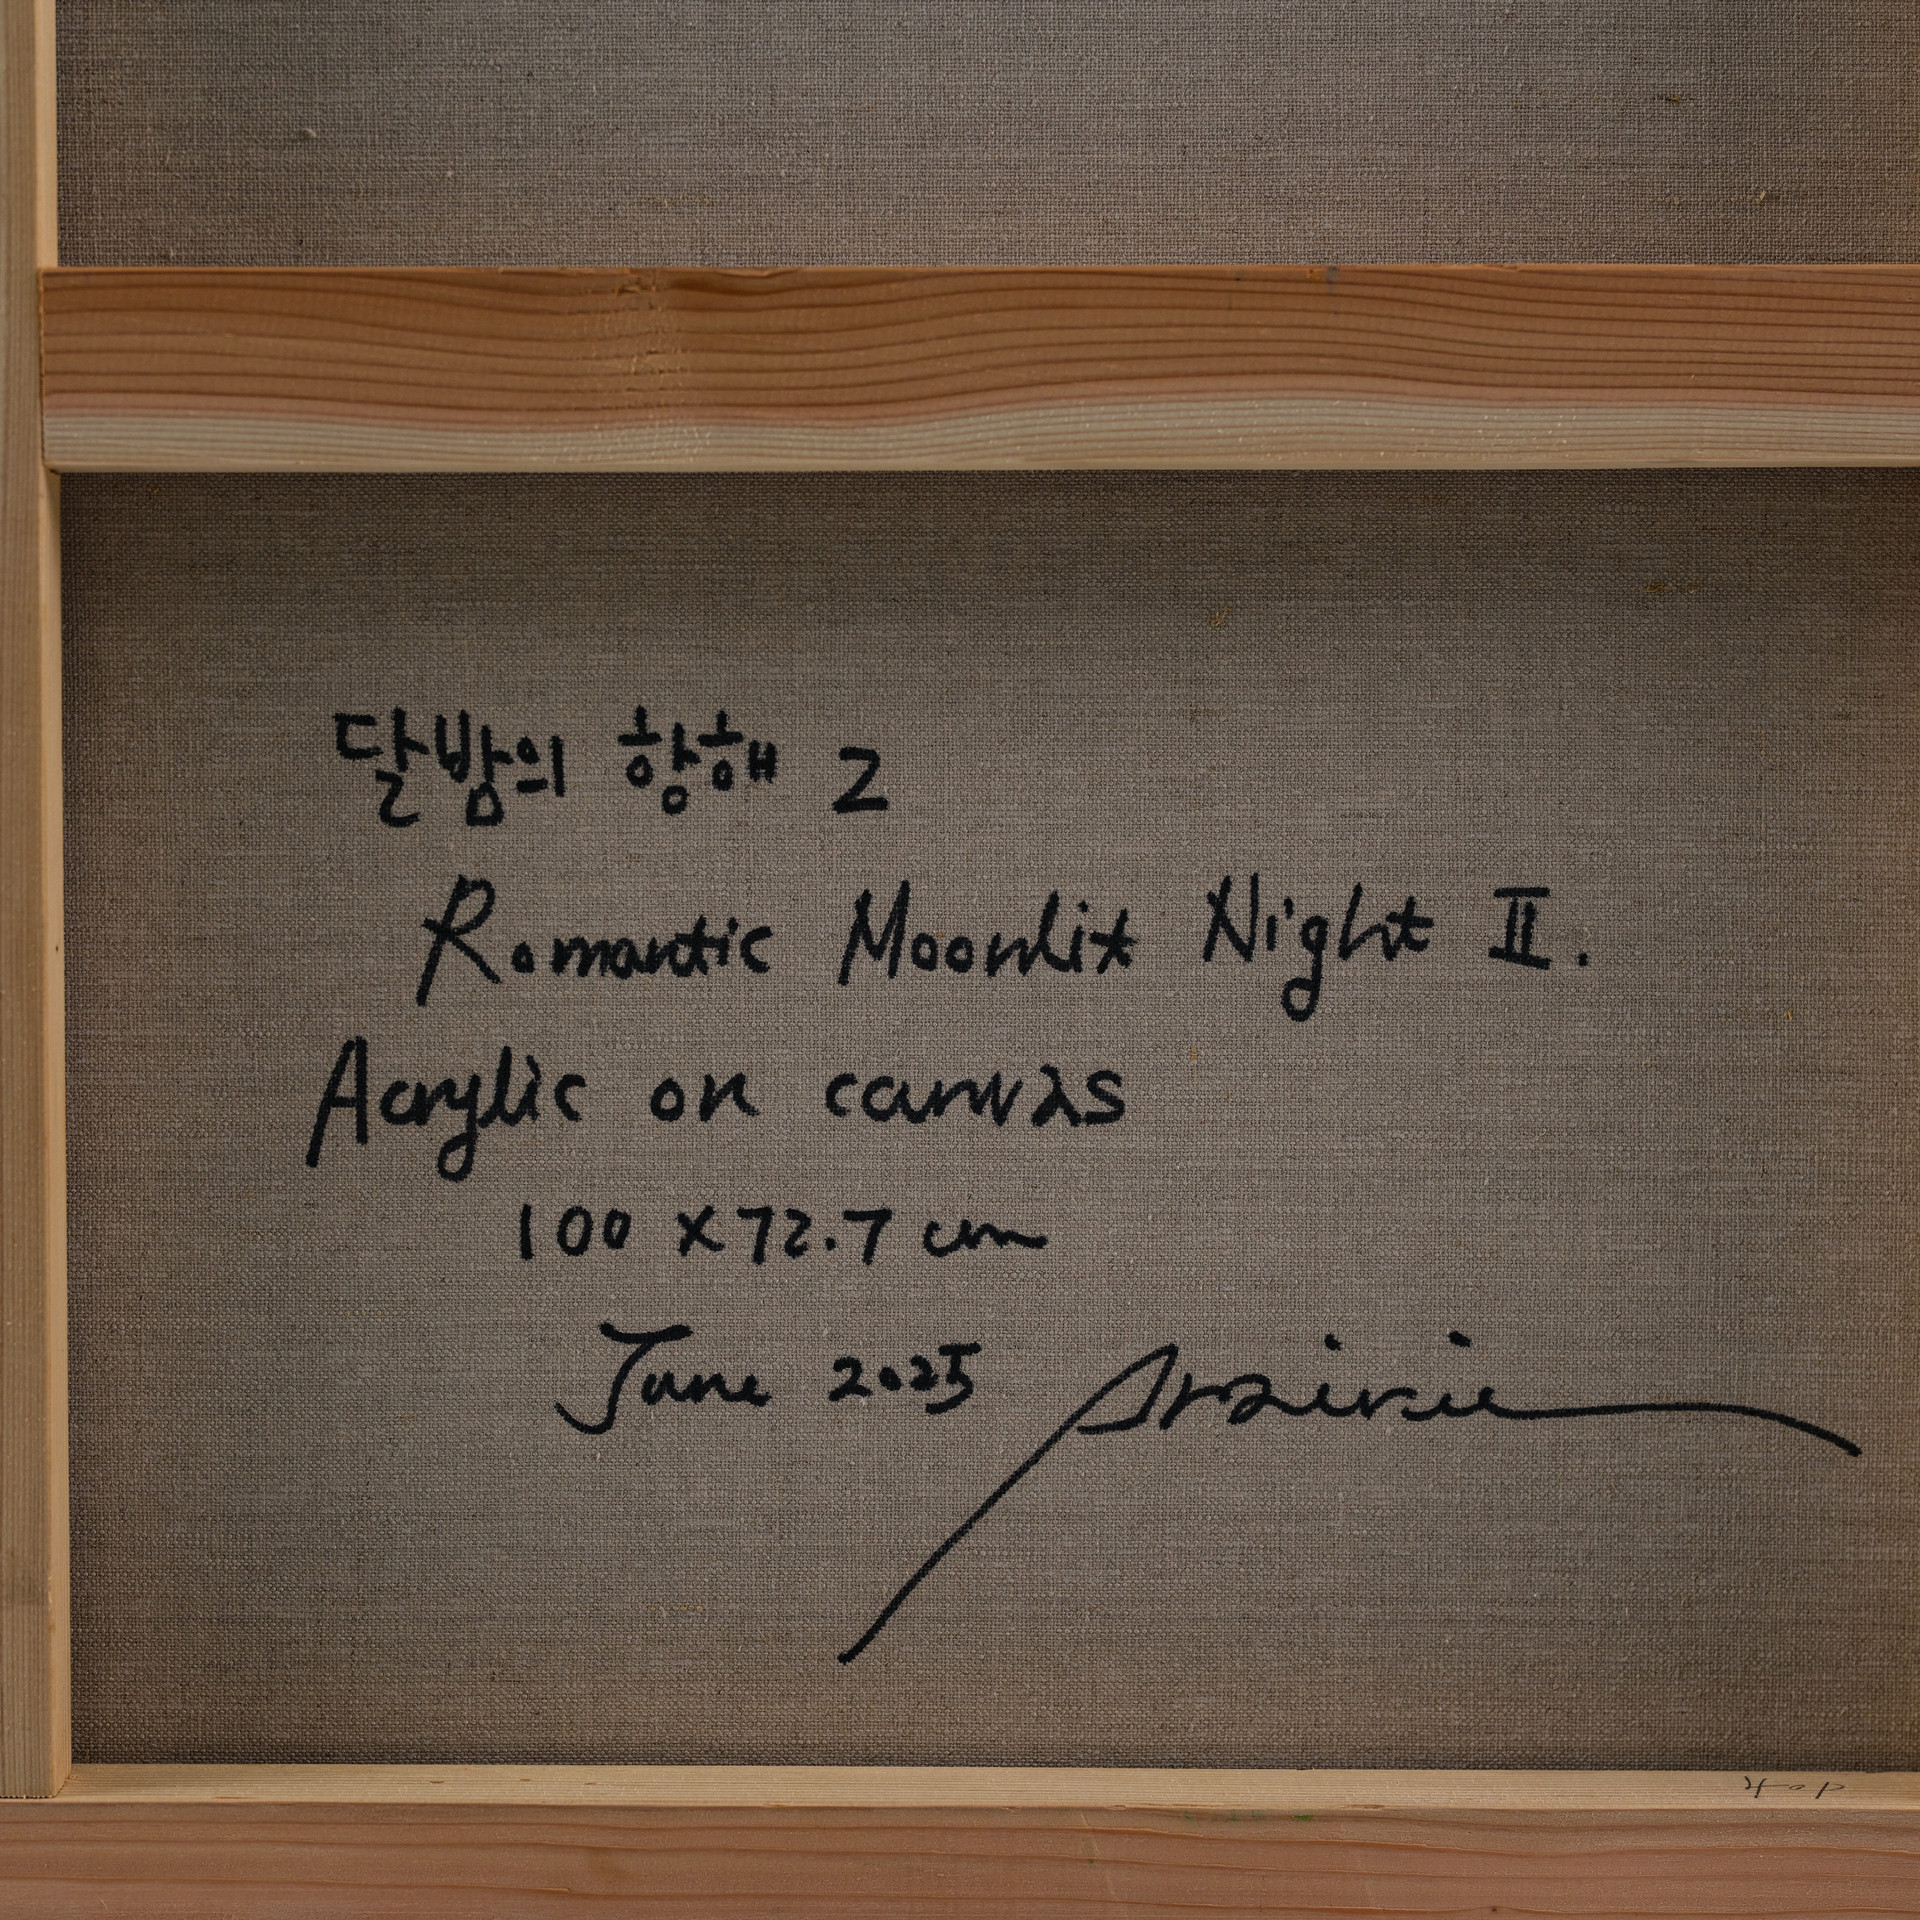 달밤의 항해 2
Romantic Moonlit Night II.
Acrylic on canvas
100 x 72.7 cm
June 2025
40P